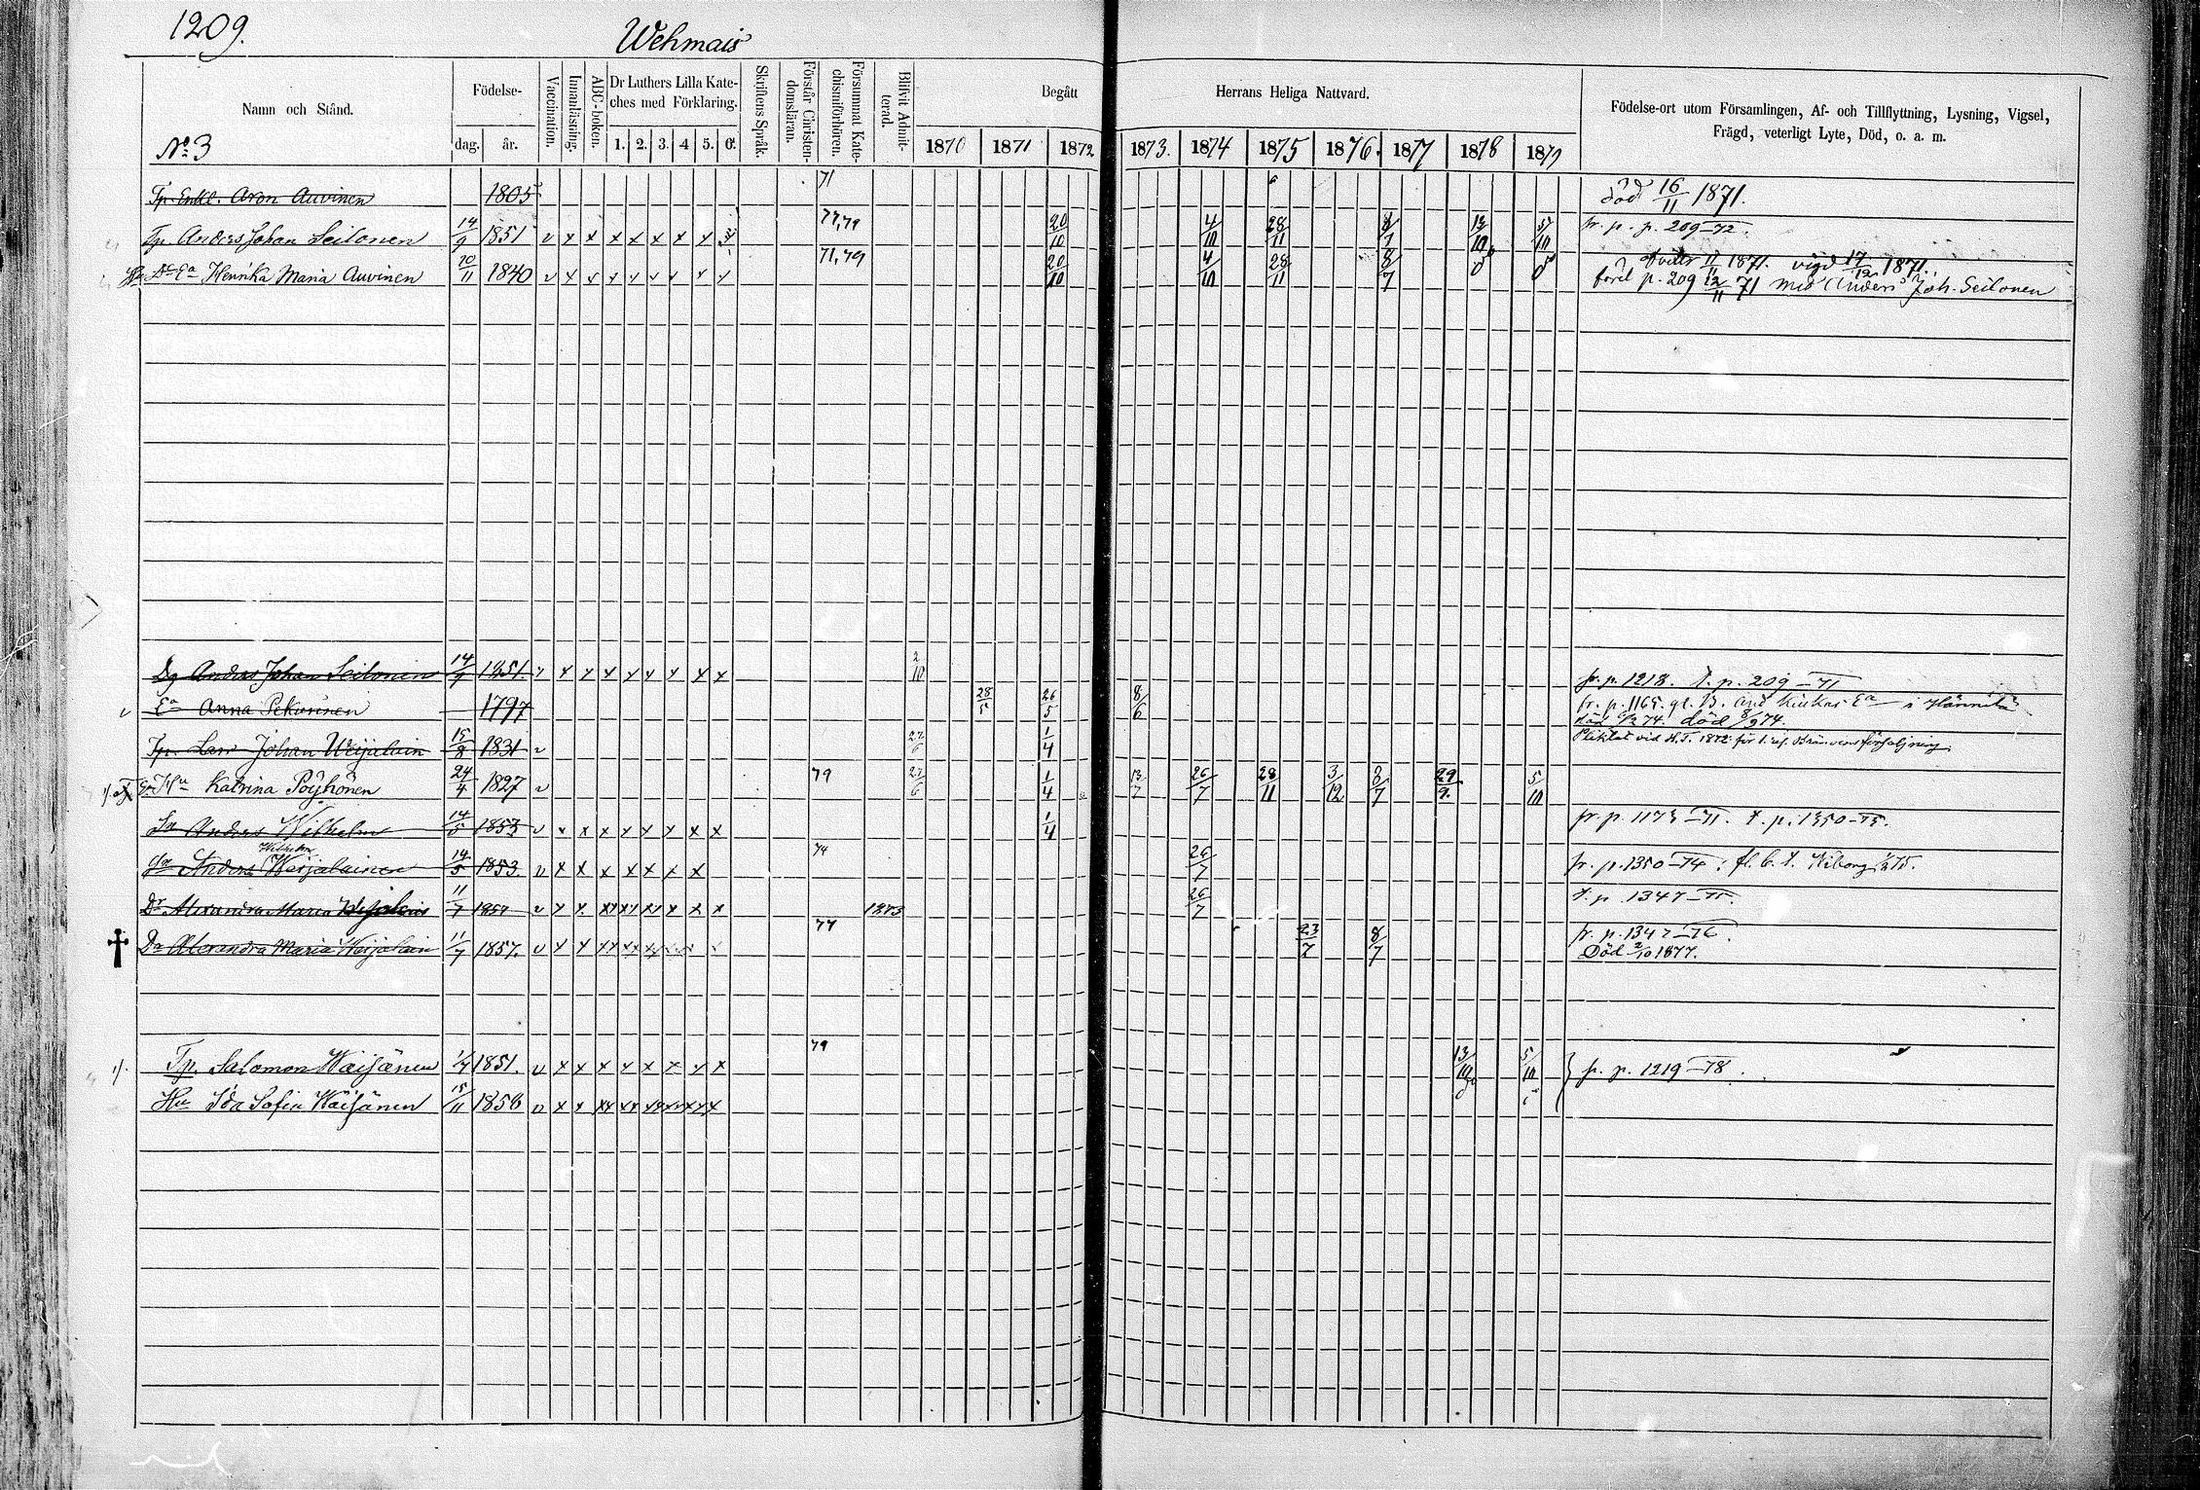 1209.
Wehmais
Namn och Stånd.
Födelse-
dag. år.
Vaccination.
Innanläsning.
ABC-boken.
Dr Luthers Lilla Kate-
ches med Förklaring.
1. 2. 3. 4 5. 6.
Skriftens Språk.
Förstår Christen-
domsläran.
Försummat Kate-
chismiförhören.
Blifvit Admit-
terad.
Begått Herrans Heliga Nattvard.
1870 1871 1872 1873. 1874 1875 1876. 1877 1878 1879
Födelse-ort utom Församlingen, Af- och Tillflyttning, Lysning, Vigsel,
Frägd, veterligt Lyte, Död, o. a. m.
No. 3
Tp. Enkl. Aron Auvinen 1805 71 död 16/11 1871.
Tp. Anders Johan Seilonen 14/9 1851 v x x x x x x x 77,79 20/10 4/10 28/11 8/7 13/10 5/10 fr. p. p. 209-72.
Hu Dr Ea Henrika Maria Auvinen 20/11 1840 v x x x x v x x x 71,79 20/10 4/10 28/11 8/7 11/11 1871. vigd 17/12 1871.
p. 209 12/11 71 med Anders Joh. Seilonen
Dg Anders Johan Seilonen 14/9 1851. v x x x x x x x x 2/10 fr. p. 1218. t. p. 209-71
Ea Anna Pekurinen 1797 28/5 26/5 8/6 fr. p. 1165. i
död 8/9 74.
Tp. Lars Johan Weijalain 15/8 1831 v 27/6 1/4 vid H.T. 1872 för
Hu Katrina Pöyhönen 24/4 1827 v 79 27/6 1/4 13/7 26/7 28/11 3/12 8/7 29/9. 5/10
So Anders Wilhelm 14/5 1853 v x x x x x x x x 1/4 fr. p. 1173-71. t. p. 1350-73.
Wilhelm
So Anders Weijalainen 14/5 1853. v x x x x x x x 74 26/7 fr. p. 1350-74; fl. b. t. Wiborg
Dr Alexandra Maria Weijalain 11/7 1857 v x x xx xx xx x x x 1873 26/7 t. p. 1347-75.
Dr Alexandra Maria Weijalain 11/7 1857. v x x xx xx xx 77 23/7 8/7 fr. p. 1347-76.
Död 2/10 1877.
Tp. Salomon Wäisänen 1/4 1851. v x x x x x x x x 79 13/10 5/10 fr. p. 1219-78.
Hu Ida Sofia Wäisänen 15/11 1856 v x x xx xx xx xx xx x